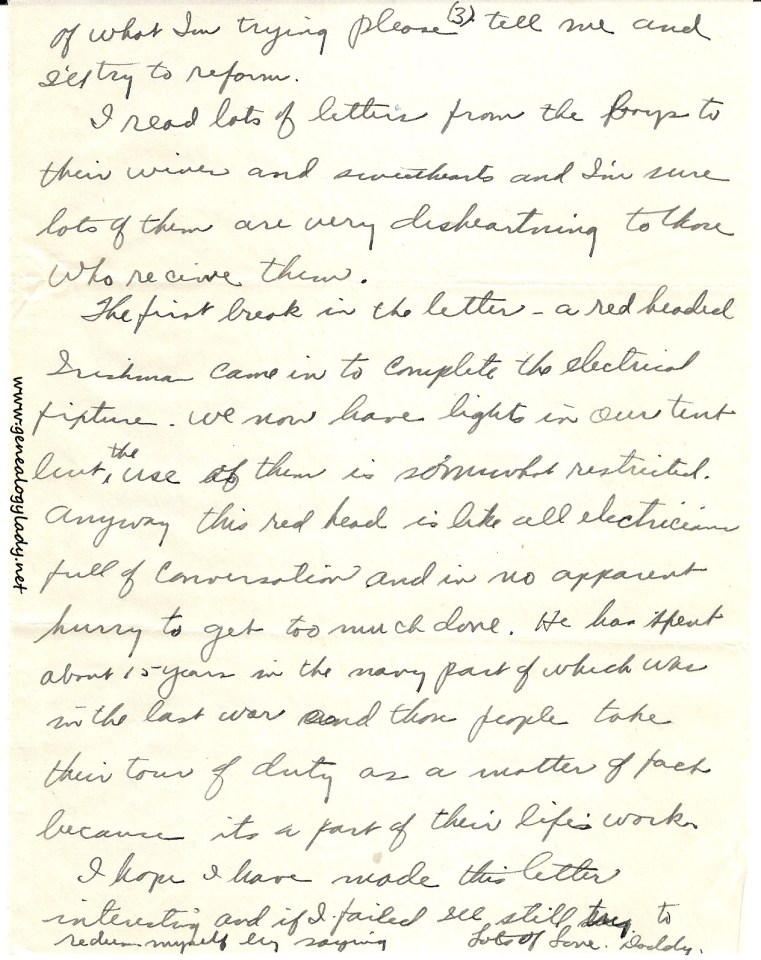 (3).
of what I'm trying please tell me and
I'll try to reform.
I read lots of letters from the Boys to
their wives and sweethearts and I'm sure
lots of them are very disheartning to those
who recieve them.
The first break in the letter - a red headed
Irishman came in to complete the electrical
fixture. We now have lights in our tent
but, the use of them is somewhat restricted.
Anyway this red head is like all electricians
full of conversation and in no apparent
hurry to get too much done. He has spent
about 15 years in the navy part of which was
in the last war and those people take
their tour of duty as a matter of fact
because its a part of their life's work.
I hope I have made this letter
interesting and if I failed I'll still try to
redeem myself by saying Lots of Love. Daddy.
www.genealogylady.net